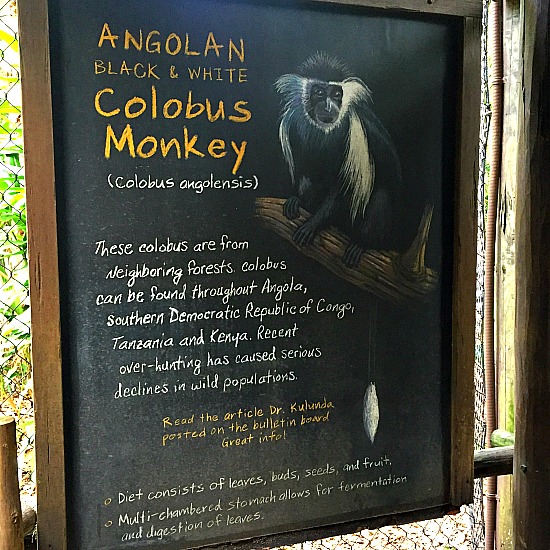 ANGOLAN
BLACK & WHITE
Colobus
Monkey
(Colobus angolensis)
These colobus are from
neighboring forests. Colobus
can be found throughout Angola,
southern Democratic Republic of Congo,
Tanzania and Kenya. Recent
over-hunting has caused serious
declines in wild populations.
Read the article Dr. Kulunda
posted on the bulletin board
Great info!
o Diet consists of leaves, buds, seeds, and fruit.
o Multi-chambered stomach allows for fermentation
and digestion of leaves.